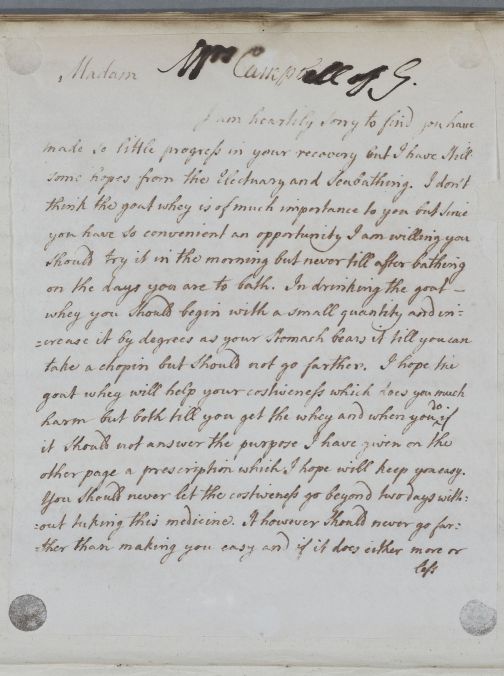 Madam Mrs Campbell of G.
I am heartily sorry to find you have
made so little progress in your recovery but I have still
some hopes from the Electuary and Seabathing. I don't
think the goat whey is of much importance to you but since
you have so convenient an opportunity I am willing you
should try it in the morning but never till after bathing
on the days you are to bath. In drinking the goat-
whey you should begin with a small quantity and in=
=crease it by degrees as your stomach bears it till you can
take a chopin but should not go farther. I hope the
goat whey will help your costiveness which does you much
harm but both till you get the whey and when you do if
it should not answer the purpose I have given on the
other page a prescription which I hope will keep you easy.
You should never let the costiveness go beyond two days with=
=out taking this medicine. It however should never go far=
=ther than making you easy and if it does either more or
less